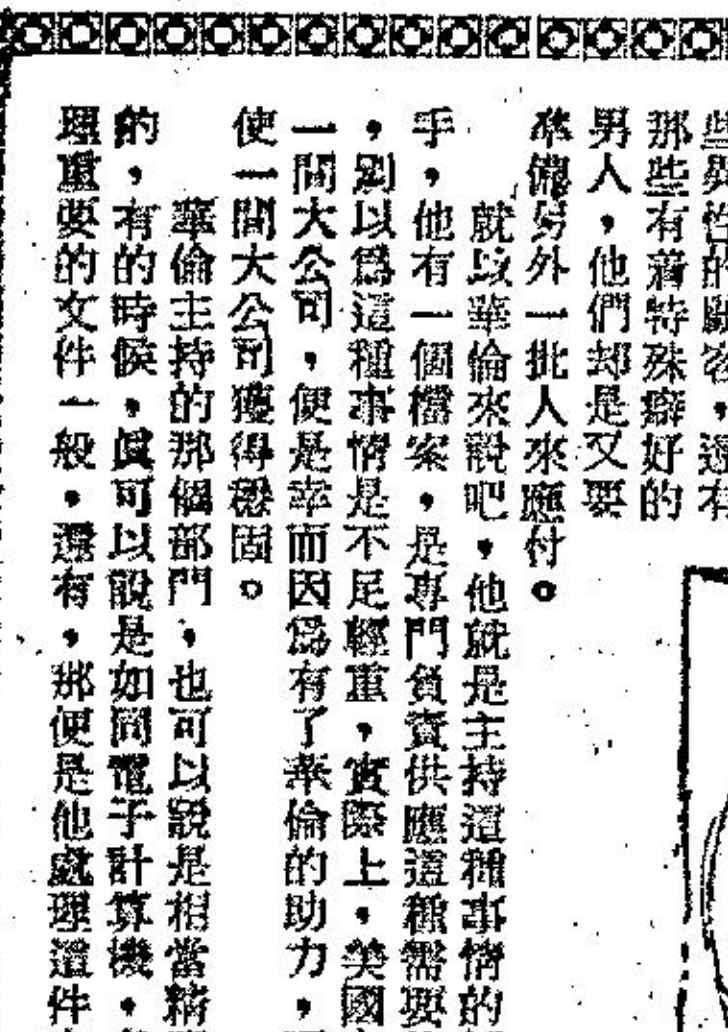 些異性的顧客，還有
那些有着特殊癖好的
男人，他們却是又要
準備另外一批人來應付。
就以華倫來說吧，他就是主持這種事情的
手，他有一個檔案，是專門負責供應這種需要
，別以爲這種事情是不足輕重，實際上，美國
一間大公司，便是幸而因爲有了華倫的助力，
使一間大公司獲得穩固。
華倫主持的那個部門，也可以說是相當精
的，有的時候，眞可以說是如同電子計算機，
理重要的文件一般，還有，那便是他處理這件